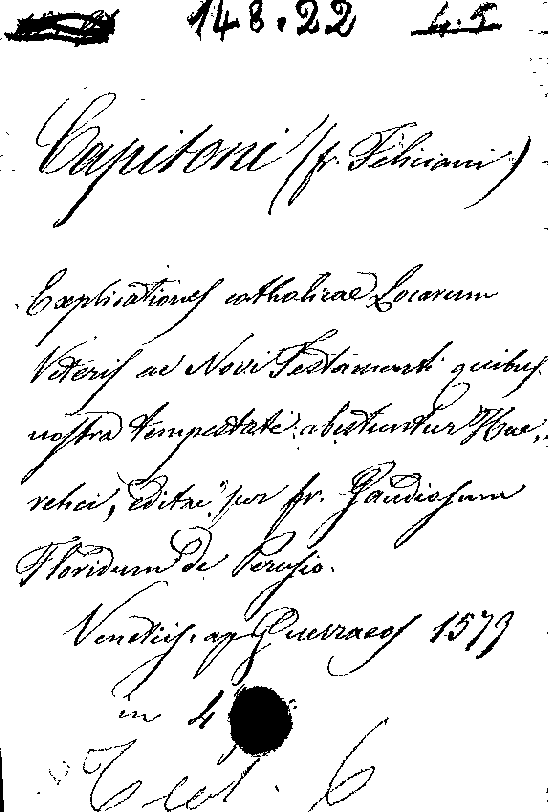 148.22
Capitoni (fr. Feliciani)
Explicationes catholicae Locorum
Veteris ac Novi Testamenti quibus
nostra tempestate abutuntur Hae-
retici, editae per fr. Gaudiosum
Floridum de Perusio.
Venetiis. ap Guerraeos 1579
in 4
Teol. 6